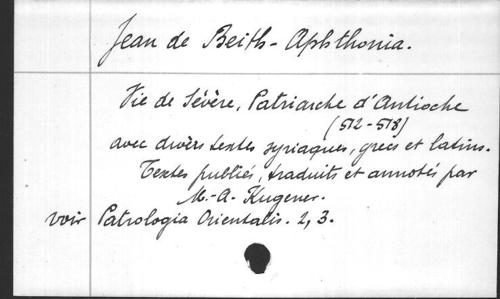 Jean de Beith-Aphthonia.
Vie de Sévère, Patriarche d'Antioche
(512-518)
avec divers textes syriaques, grecs et latins.
Textes publiés, traduits et annotés par
M.-A. Kugener.
voir Patrologia Orientalis. 2, 3.